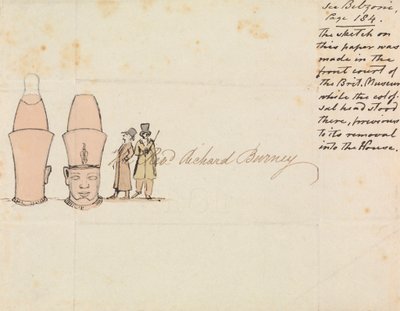 see Belzoni,
Page 184.
The sketch on
this paper was
made in the
front court of
the Brit. Museum
while the colos-
sal head stood
there, previous
to its removal
into the House.
Revd. Richard Burney